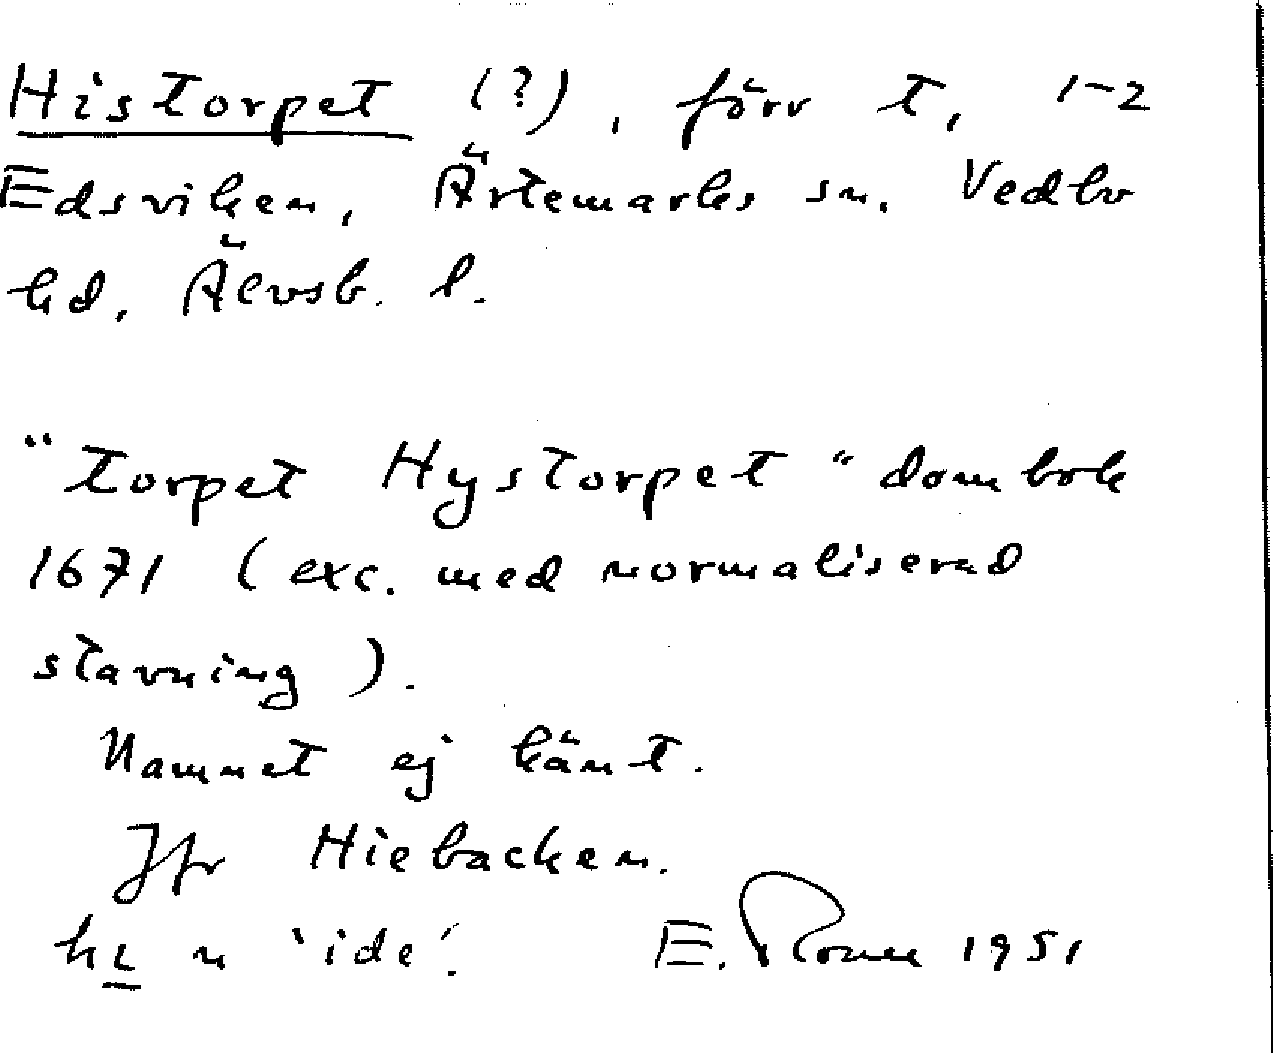 Historpet (?), förr t, 1-2
Edsviken, Ärtemarks sn. Vedbo
hd, Älvsb. l.
"torpet Hystorpet" dombok
1671 (exc. med normaliserad
stavning).
Namnet ej känt.
Jfr Hiebacken.
hi n 'ide'. E. 1951